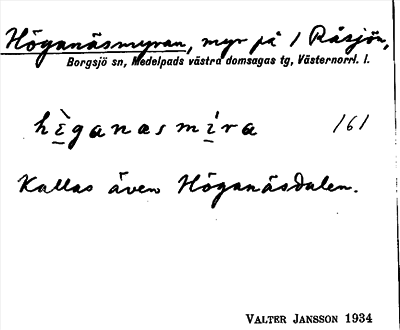 Höganäsmyran, myr på 1 Råsjön,
Borgsjö sn, Medelpads västra domsagas tg, Västernorrl. l.
hìganasmíra 161
Kallas även Höganäsdalen.
VALTER JANSSON 1934